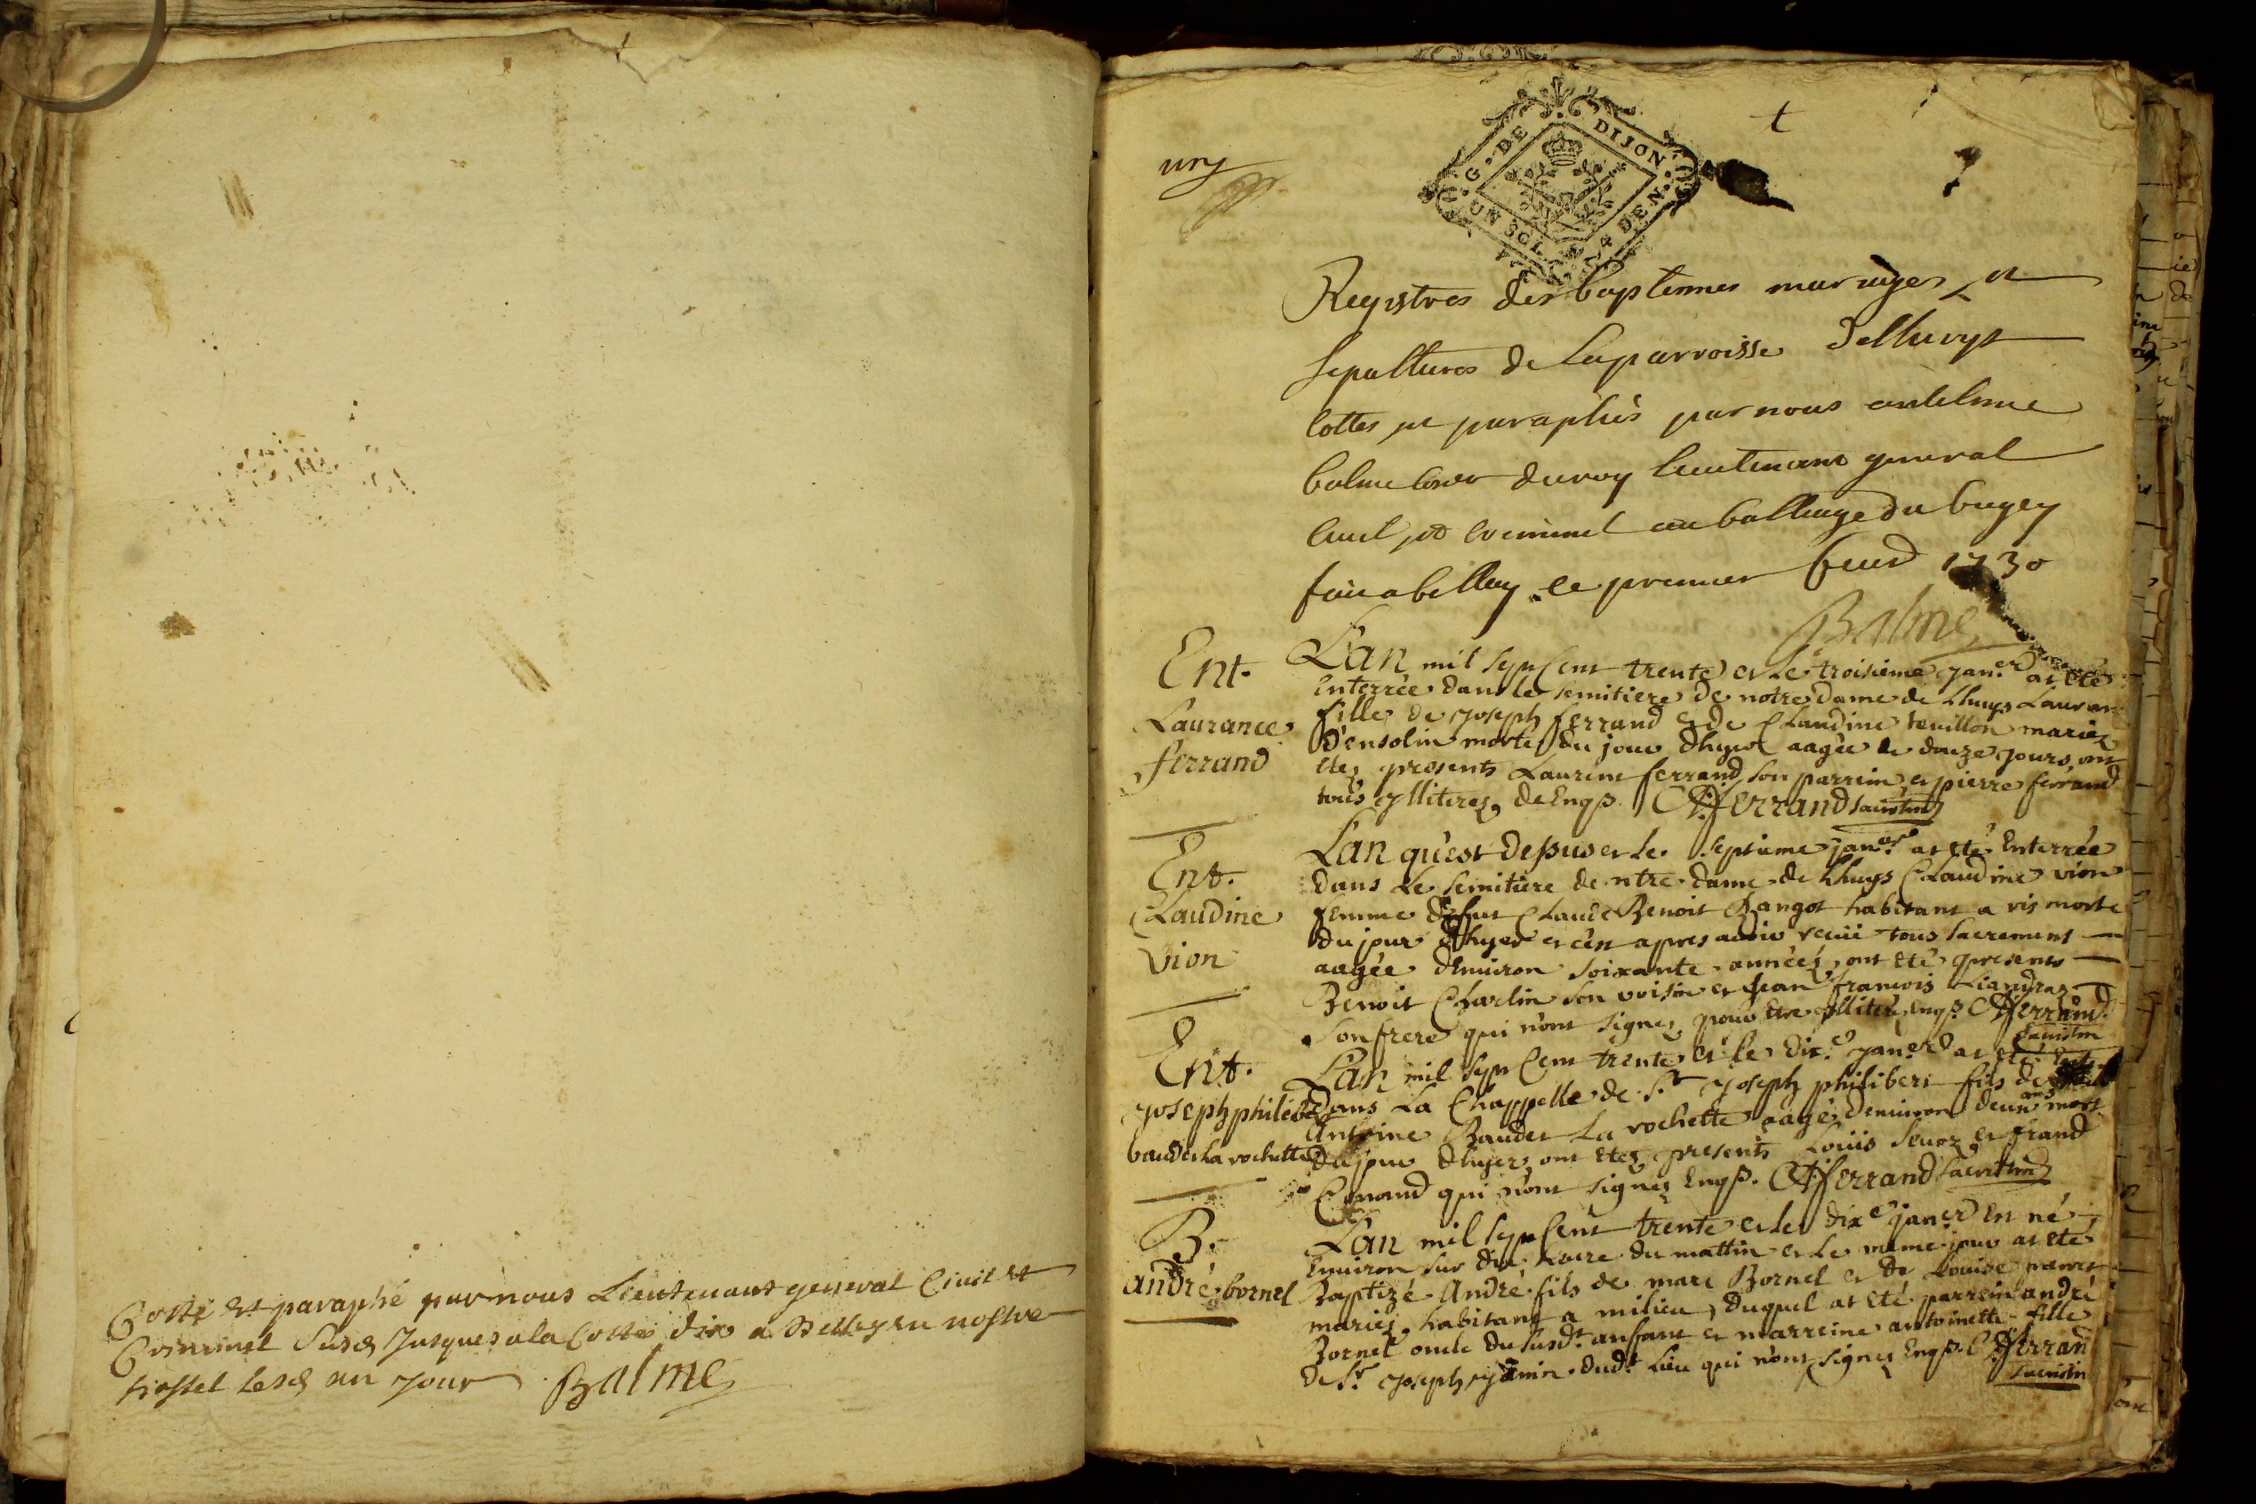 Cotté et paraphé par nous Lieutenant general Civil et
Criminel Susd Jusques a la Cotte dix a Belley en nostre
hostel lesd an jour Balme
un
G. DE DIJON
UN SOL 4 DEN.
Registres des baptemes mariages et
sepultures de la parroisse de Lhuys
cottes et paraphés par nous antelme
balme Coner du roy lieutenant general
Civil et Criminel au balliage du bugey
fait a belley le premier 1730
Balme
Ent.
Laurance
ferrand
Lan mil sept Cent trente et le troisieme janer at été
Enterrée dans le semitiere de notre dame de Lhuys Lauran
fille de joseph ferrand et de Claudine teuillon mariez
d'ensolin morte du jour dhyer aagée de douze jours, ont
étez presents Laurent ferrand son parrein et pierre ferrand
tous ylliterez, de Enqs. ferrand sacristin
Ent.
Claudine
vion
Lan qu'est dessus et le septieme janer at été Enterrée
dans le semitiere de ntre dame de Lhuys Claudine vion
femme de fut Claude Benoit Bangot habitant a vis morte
du jour dhyer et c'est apres avoir recüe tous sacrements
aagée denviron soixante années, ont été presents
Benoit Charlin son voisin et jean francois
son frere qui n'ont signez pour etre yllitere, Enqs. ferrand
sacristin
Ent.
joseph philibe
baudet la rochette
Lan mil sept Cent trente et le dix.e janer at eté
dans La Chappelle de St joseph philibert fils de
Antoine Baudet La rochette aagé denviron deux ans mort
du jour dhyer, ont étez presents Louis Seuoz et frand
Conand qui n'ont signez Enqs. ferrand sacristin
B.
andré bornel
Lan mil sept Cent trente et le dixe janer En né
Environ sur dix heure du mattin et le meme jour at eté
Baptizé André fils de marc Bornel et de Louise
mariez habitant a milieu, duquel at eté parrein andré
Bornel oncle du susdt anfant et marreine antoinette fille
de Sr joseph dudt Lieu qui n'ont signez Enqs. ferran
sacristin